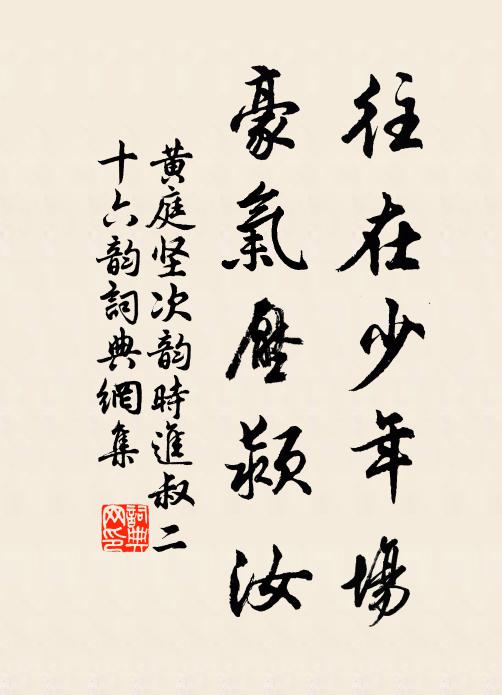 往在少年場
豪氣壓潁汝
黄庭坚次韵時進叔二
十六韵詞典網集
詞典
网印